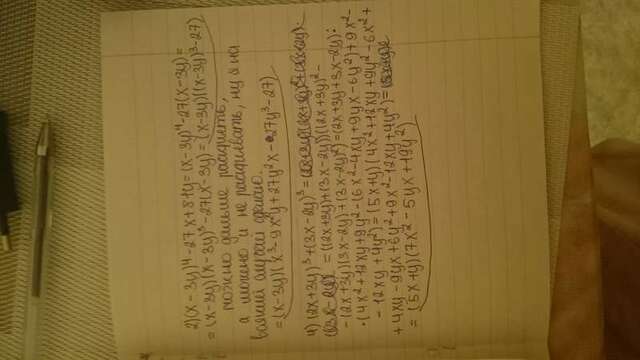 2)(x - 3y)⁴ - 27x + 81y = (x - 3y)⁴ - 27(x - 3y) =
= (x - 3y)(x - 3y)³ - 27(x - 3y) = (x - 3y)((x - 3y)³ - 27)
можно дальше раскрыть,
а можно и не раскрывать, ну я на
всякий случай сделаю.
= (x - 3y)(x³ - 9x²y + 27y²x - 27y³ - 27)
4) (2x + 3y)³ + (3x - 2y)³ =
= ((2x + 3y) + (3x - 2y))((2x + 3y)² -
- (2x + 3y)(3x - 2y) + (3x - 2y)²) = (2x + 3y + 3x - 2y) ·
· (4x² + 12xy + 9y² - (6x² - 4xy + 9yx - 6y²) + 9x² -
- 12xy + 4y²) = (5x + y)(4x² + 12xy + 9y² - 6x² +
+ 4xy - 9yx + 6y² + 9x² - 12xy + 4y²) =
= (5x + y)(7x² - 5yx + 19y²)